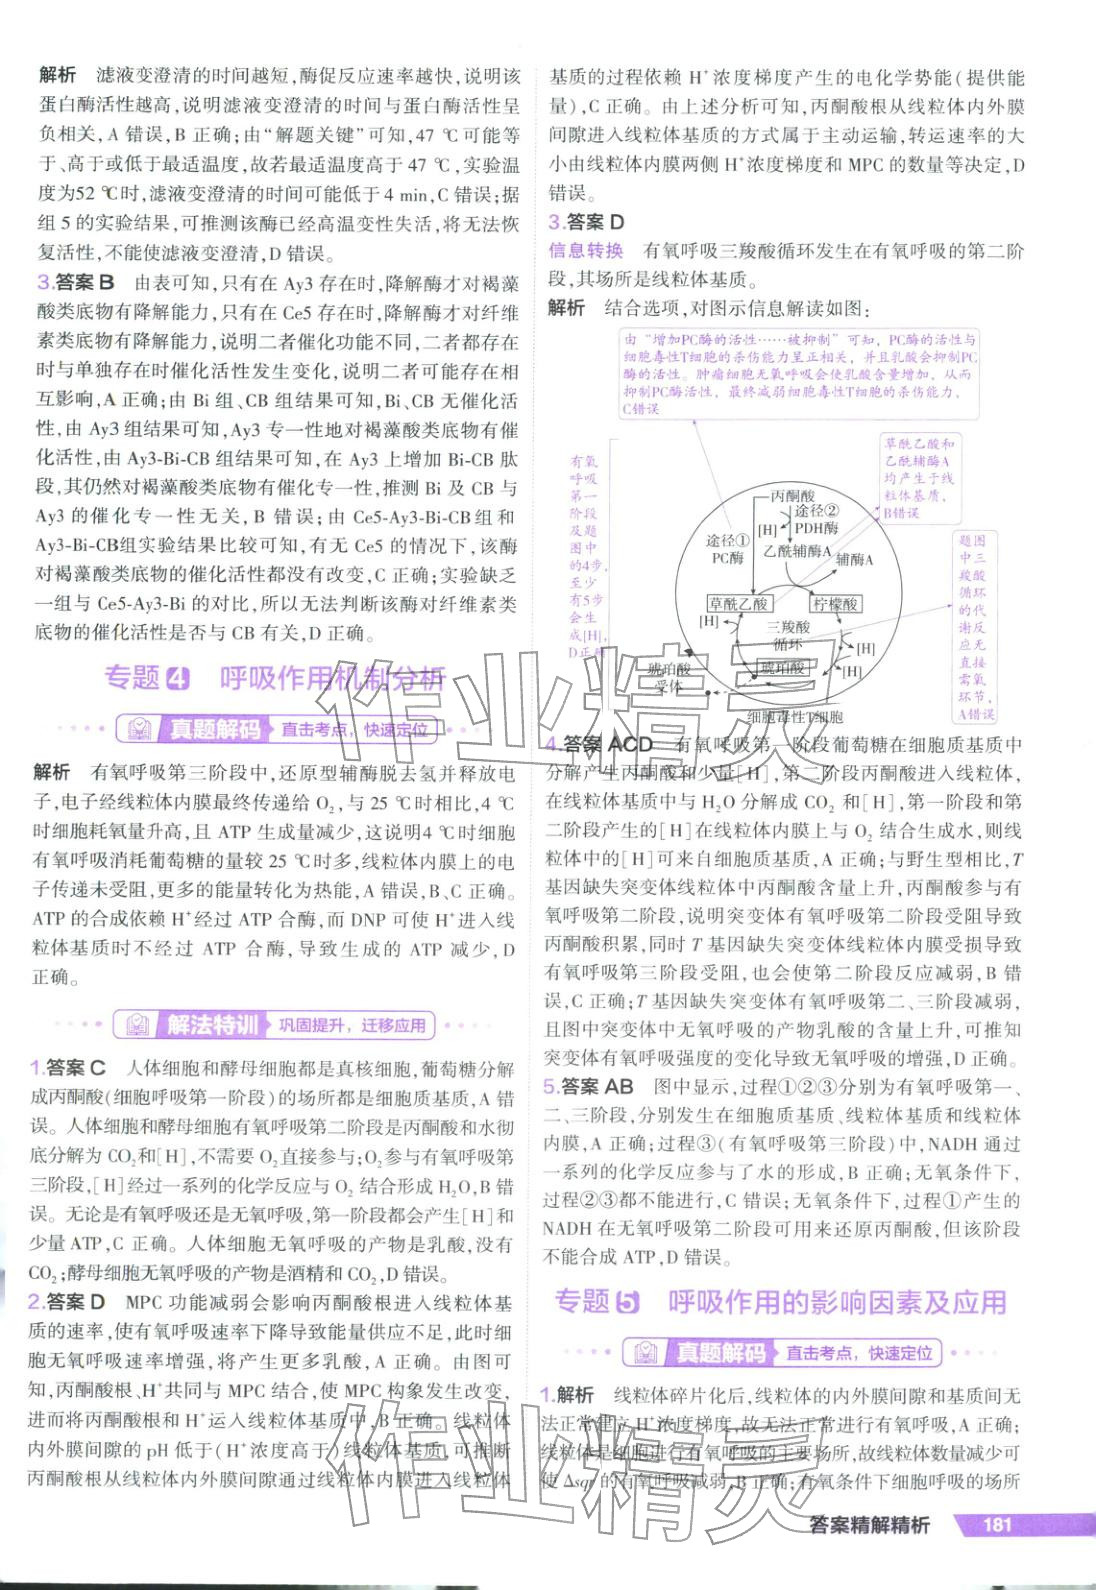 解析　滤液变澄清的时间越短,酶促反应速率越快,说明该
蛋白酶活性越高,说明滤液变澄清的时间与蛋白酶活性呈
负相关,A 错误,B 正确;由“解题关键”可知,47 ℃可能等
于、高于或低于最适温度,故若最适温度高于 47 ℃,实验温
度为52 ℃时,滤液变澄清的时间可能低于 4 min,C 错误;据
组 5 的实验结果,可推测该酶已经高温变性失活,将无法恢
复活性,不能使滤液变澄清,D 错误。
3.答案 B　由表可知,只有在 Ay3 存在时,降解酶才对褐藻
酸类底物有降解能力,只有在 Ce5 存在时,降解酶才对纤维
素类底物有降解能力,说明二者催化功能不同,二者都存在
时与单独存在时催化活性发生变化,说明二者可能存在相
互影响,A 正确;由 Bi 组、CB 组结果可知,Bi、CB 无催化活
性,由 Ay3 组结果可知,Ay3 专一性地对褐藻酸类底物有催
化活性,由 Ay3-Bi-CB 组结果可知,在 Ay3 上增加 Bi-CB 肽
段,其仍然对褐藻酸类底物有催化专一性,推测 Bi 及 CB 与
Ay3 的催化专一性无关,B 错误;由 Ce5-Ay3-Bi-CB 组和
Ay3-Bi-CB组实验结果比较可知,有无 Ce5 的情况下,该酶
对褐藻酸类底物的催化活性都没有改变,C 正确;实验缺乏
一组与 Ce5-Ay3-Bi 的对比,所以无法判断该酶对纤维素类
底物的催化活性是否与 CB 有关,D 正确。
专题 4　呼吸作用机制分析
真题解码 直击考点，快速定位
解析　有氧呼吸第三阶段中,还原型辅酶脱去氢并释放电
子,电子经线粒体内膜最终传递给 O₂,与 25 ℃时相比,4 ℃
时细胞耗氧量升高,且 ATP 生成量减少,这说明4 ℃时细胞
有氧呼吸消耗葡萄糖的量较 25 ℃时多,线粒体内膜上的电
子传递未受阻,更多的能量转化为热能,A 错误,B、C 正确。
ATP 的合成依赖 H⁺经过 ATP 合酶,而 DNP 可使 H⁺进入线
粒体基质时不经过 ATP 合酶,导致生成的 ATP 减少,D
正确。
解法特训 巩固提升，迁移应用
1.答案 C　人体细胞和酵母细胞都是真核细胞,葡萄糖分解
成丙酮酸(细胞呼吸第一阶段)的场所都是细胞质基质,A 错
误。人体细胞和酵母细胞有氧呼吸第二阶段是丙酮酸和水彻
底分解为 CO₂和[H],不需要 O₂直接参与;O₂参与有氧呼吸第
三阶段,[H]经过一系列的化学反应与 O₂ 结合形成 H₂O,B 错
误。无论是有氧呼吸还是无氧呼吸,第一阶段都会产生[H]和
少量 ATP,C 正确。人体细胞无氧呼吸的产物是乳酸,没有
CO₂;酵母细胞无氧呼吸的产物是酒精和 CO₂,D 错误。
2.答案 D　MPC 功能减弱会影响丙酮酸根进入线粒体基
质的速率,使有氧呼吸速率下降导致能量供应不足,此时细
胞无氧呼吸速率增强,将产生更多乳酸,A 正确。由图可
知,丙酮酸根、H⁺共同与 MPC 结合,使 MPC 构象发生改变,
进而将丙酮酸根和 H⁺运入线粒体基质中,B 正确。线粒体
内外膜间隙的 pH 低于(H⁺浓度高于)线粒体基质,可推断
丙酮酸根从线粒体内外膜间隙通过线粒体内膜进入线粒体
基质的过程依赖 H⁺浓度梯度产生的电化学势能(提供能
量),C 正确。由上述分析可知,丙酮酸根从线粒体内外膜
间隙进入线粒体基质的方式属于主动运输,转运速率的大
小由线粒体内膜两侧 H⁺浓度梯度和 MPC 的数量等决定,D
错误。
3.答案 D
信息转换　有氧呼吸三羧酸循环发生在有氧呼吸的第二阶
段,其场所是线粒体基质。
解析　结合选项,对图示信息解读如图:
由“增加PC酶的活性……被抑制”可知，PC酶的活性与
细胞毒性T细胞的杀伤能力呈正相关，并且乳酸会抑制PC
酶的活性。肿瘤细胞无氧呼吸会使乳酸含量增加，从而
抑制PC酶活性，最终减弱细胞毒性T细胞的杀伤能力，
C错误
草酰乙酸和
乙酰辅酶A
均产生于线
粒体基质，
B错误
有氧
呼吸
第一
阶段
及题
图中
的4步，
至少
有5步
会生
成[H]，
D正确
丙酮酸
[H]
途径②
PDH酶
途径①
PC酶
乙酰辅酶A
辅酶A
草酰乙酸
柠檬酸
[H]
三羧酸
循环
[H]
琥珀酸
受体
琥珀酸
细胞毒性T细胞
题图
中三
羧酸
循环
的代
谢反
应无
直接
需氧
环节，
A错误
4.答案 ACD　有氧呼吸第一阶段葡萄糖在细胞质基质中
分解产生丙酮酸和少量[H],第二阶段丙酮酸进入线粒体,
在线粒体基质中与 H₂O 分解成 CO₂ 和[H],第一阶段和第
二阶段产生的[H]在线粒体内膜上与 O₂ 结合生成水,则线
粒体中的[H]可来自细胞质基质,A 正确;与野生型相比,T
基因缺失突变体线粒体中丙酮酸含量上升,丙酮酸参与有
氧呼吸第二阶段,说明突变体有氧呼吸第二阶段受阻导致
丙酮酸积累,同时 T 基因缺失突变体线粒体内膜受损导致
有氧呼吸第三阶段受阻,也会使第二阶段反应减弱,B 错
误,C 正确;T 基因缺失突变体有氧呼吸第二、三阶段减弱,
且图中突变体中无氧呼吸的产物乳酸的含量上升,可推知
突变体有氧呼吸强度的变化导致无氧呼吸的增强,D 正确。
5.答案 AB　图中显示,过程①②③分别为有氧呼吸第一、
二、三阶段,分别发生在细胞质基质、线粒体基质和线粒体
内膜,A 正确;过程③(有氧呼吸第三阶段)中,NADH 通过
一系列的化学反应参与了水的形成,B 正确;无氧条件下,
过程②③都不能进行,C 错误;无氧条件下,过程①产生的
NADH 在无氧呼吸第二阶段可用来还原丙酮酸,但该阶段
不能合成 ATP,D 错误。
专题 5　呼吸作用的影响因素及应用
真题解码 直击考点，快速定位
1.解析　线粒体碎片化后,线粒体的内外膜间隙和基质间无
法正常建立 H⁺浓度梯度,故无法正常进行有氧呼吸,A 正确;
线粒体是细胞进行有氧呼吸的主要场所,故线粒体数量减少可
使 Δsqr 的有氧呼吸减弱,B 正确;有氧条件下细胞呼吸的场所
作业精灵
作业精灵
答案精解精析 181